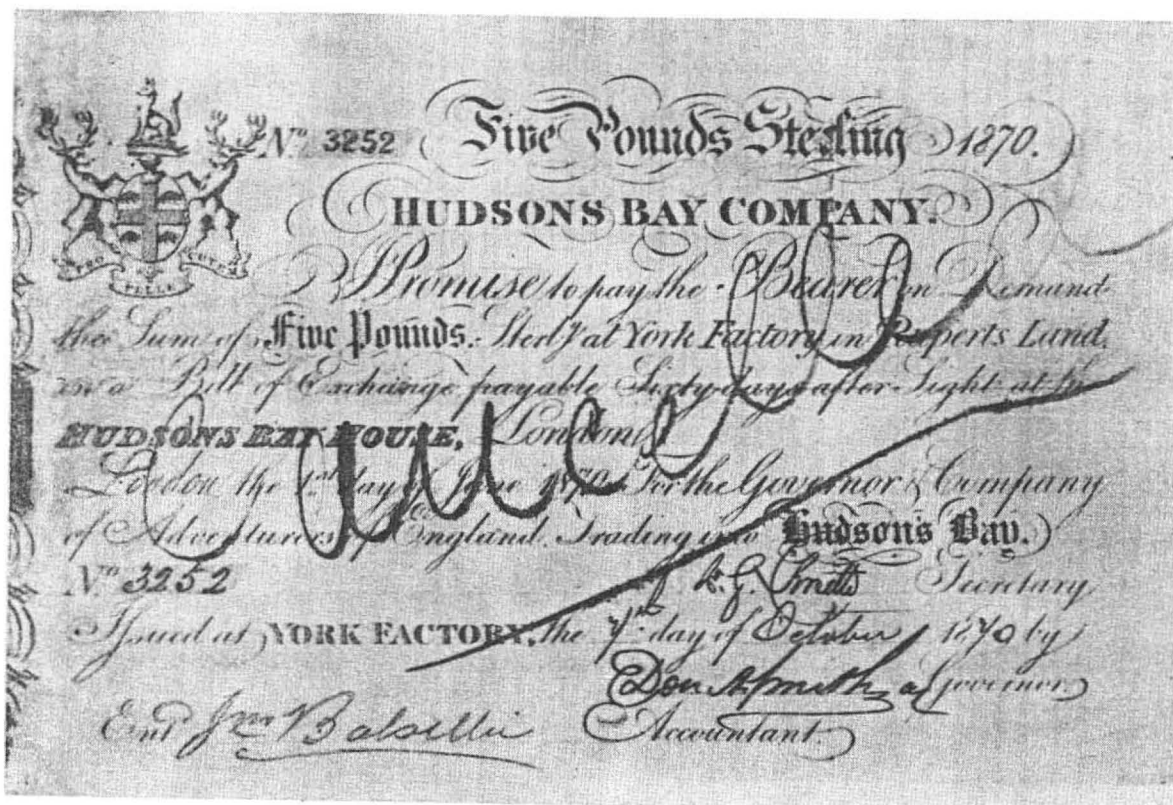 No. 3252 Five Pounds Sterling 1870.
HUDSONS BAY COMPANY.
I Promise to pay the Bearer on Demand
the Sum of Five Pounds. Sterlg at York Factory in Ruperts Land,
in a Bill of Exchange payable Sixty days after Sight at the
HUDSONS BAY HOUSE, London
London the 1st day of June 1870 For the Governor & Company
of Adventurers of England Trading into Hudson's Bay.
No. 3252
W. G. Smith Secretary
Issued at YORK FACTORY, the 7th day of October 1870 by
Don A Smith a Governor
Entd Jno Balsillie Accountant.
PRO PELLE CUTEM
Cancelled